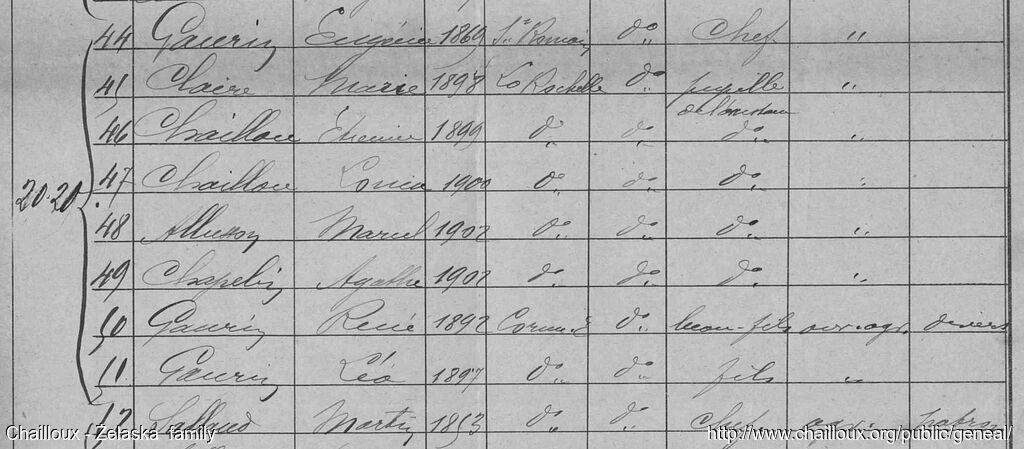 44 Gaurin Eugénie 1869 St Romain do,, Chef ,,
45 Claire Marie 1898 La Rochelle do,, pupille ,,
de l'assistance
46 Chaillou Étienne 1899 do,, do,, do,, ,,
20 20 47 Chaillou Louis 1900 do,, do,, do,, ,,
48 Allusson Marcel 1902 do,, do,, do,, ,,
49 Chapelin Agathe 1902 do,, do,, do,, ,,
50 Gaurin René 1892 Corme E do,, beau-fils ouv. agr. divers
51 Gaurin Léo 1897 do,, do,, fils ,,
52 Sallaud Martin 1853 do,, do,, Chef patron
Chailloux - Żelaska family
http://www.chailloux.org/public/geneal/